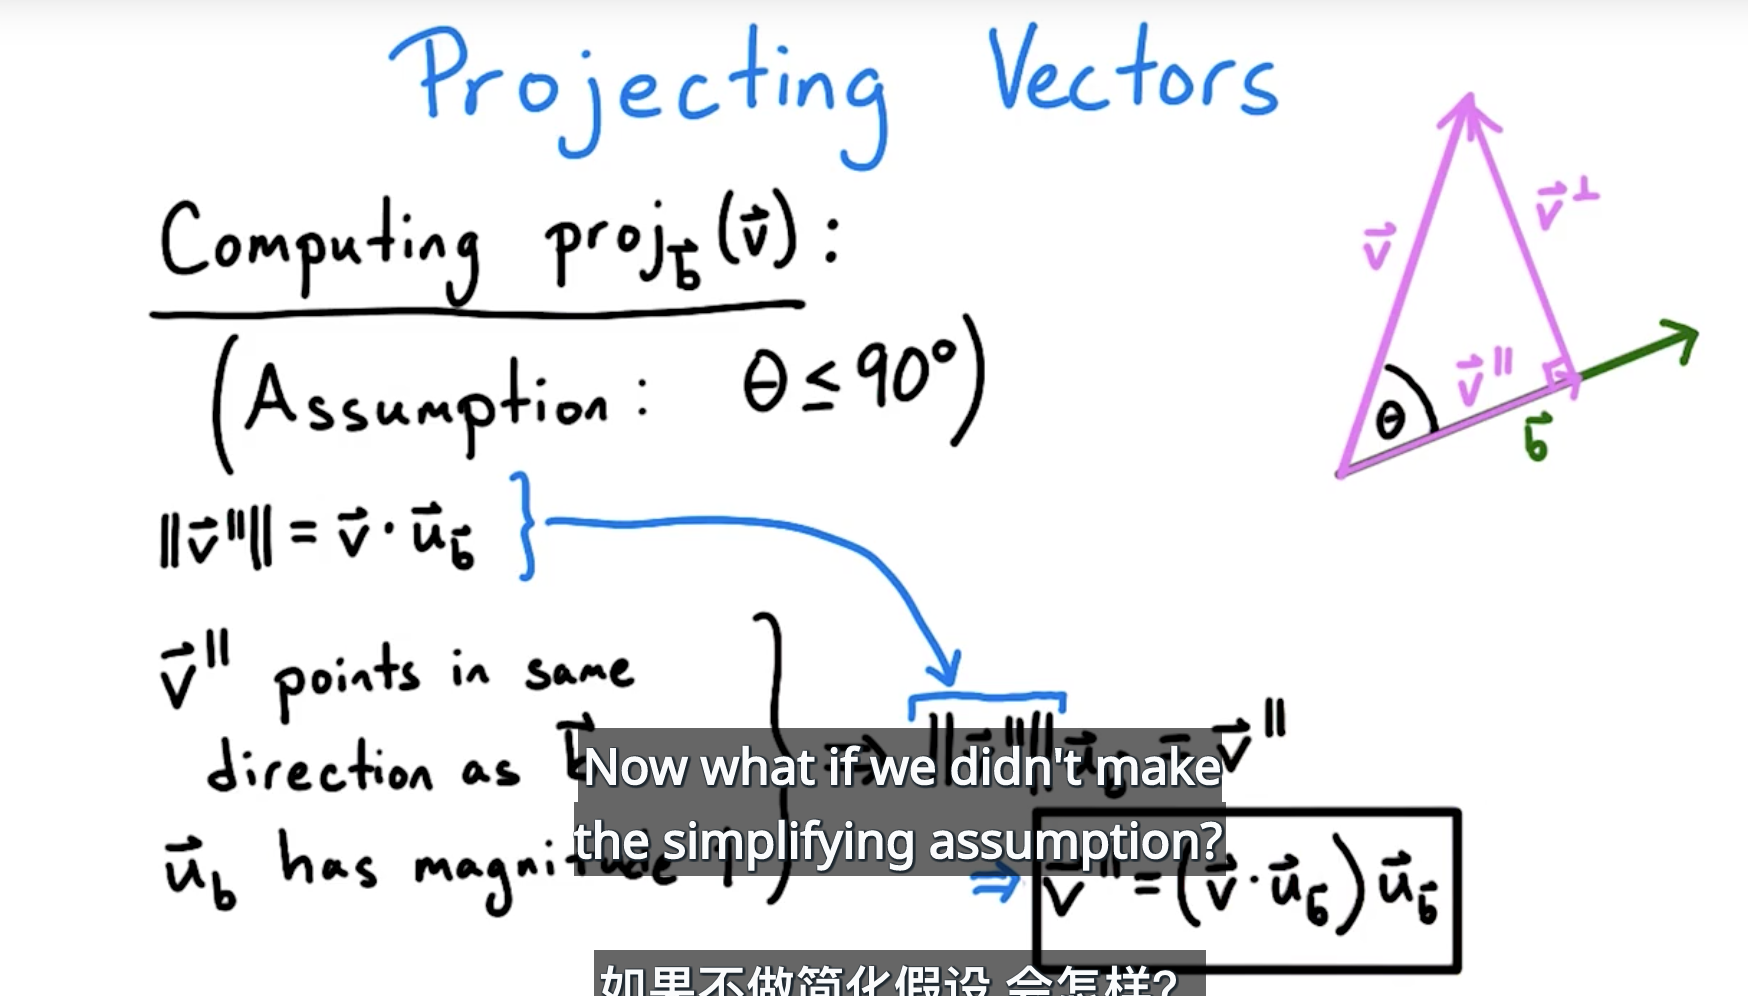 Projecting Vectors
Computing proj_b⃗ (v⃗) :
(Assumption : θ ≤ 90°)
‖v⃗^∥‖ = v⃗ · u⃗_b⃗
v⃗^∥ points in same
direction as b⃗
u⃗_b has magnitude 1
⇒ ‖v⃗^∥‖ u⃗_b = v⃗^∥
⇒ v⃗^∥ = (v⃗ · u⃗_b⃗) u⃗_b⃗
v⃗
v⃗^⊥
v⃗^∥
θ
b⃗
Now what if we didn't make
the simplifying assumption?
如果不做简化假设 会怎样?